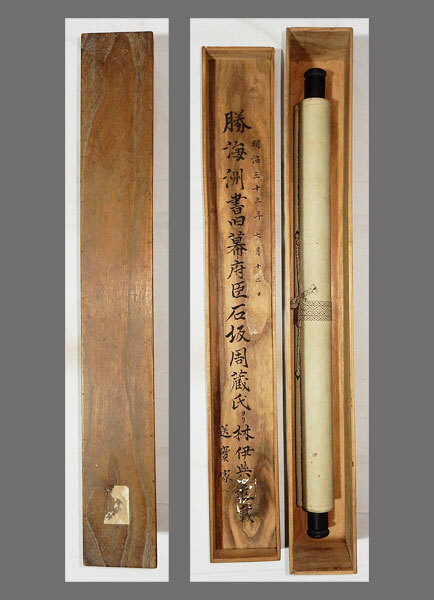 明治三十三年七月十二日
勝海洲書旧幕府臣石坂周蔵氏ヨリ林伊兵
送賓家